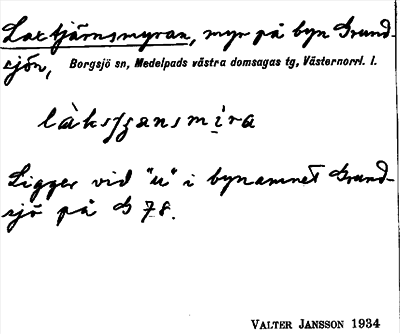 Laxtjärnsmyran, myr på byn Grund-
sjön, Borgsjö sn, Medelpads västra domsagas tg, Västernorrl. l.
làksʃʒænsmi̱ra
Ligger vid "u" i bynamnet Grund-
sjö på G 78.
VALTER JANSSON 1934